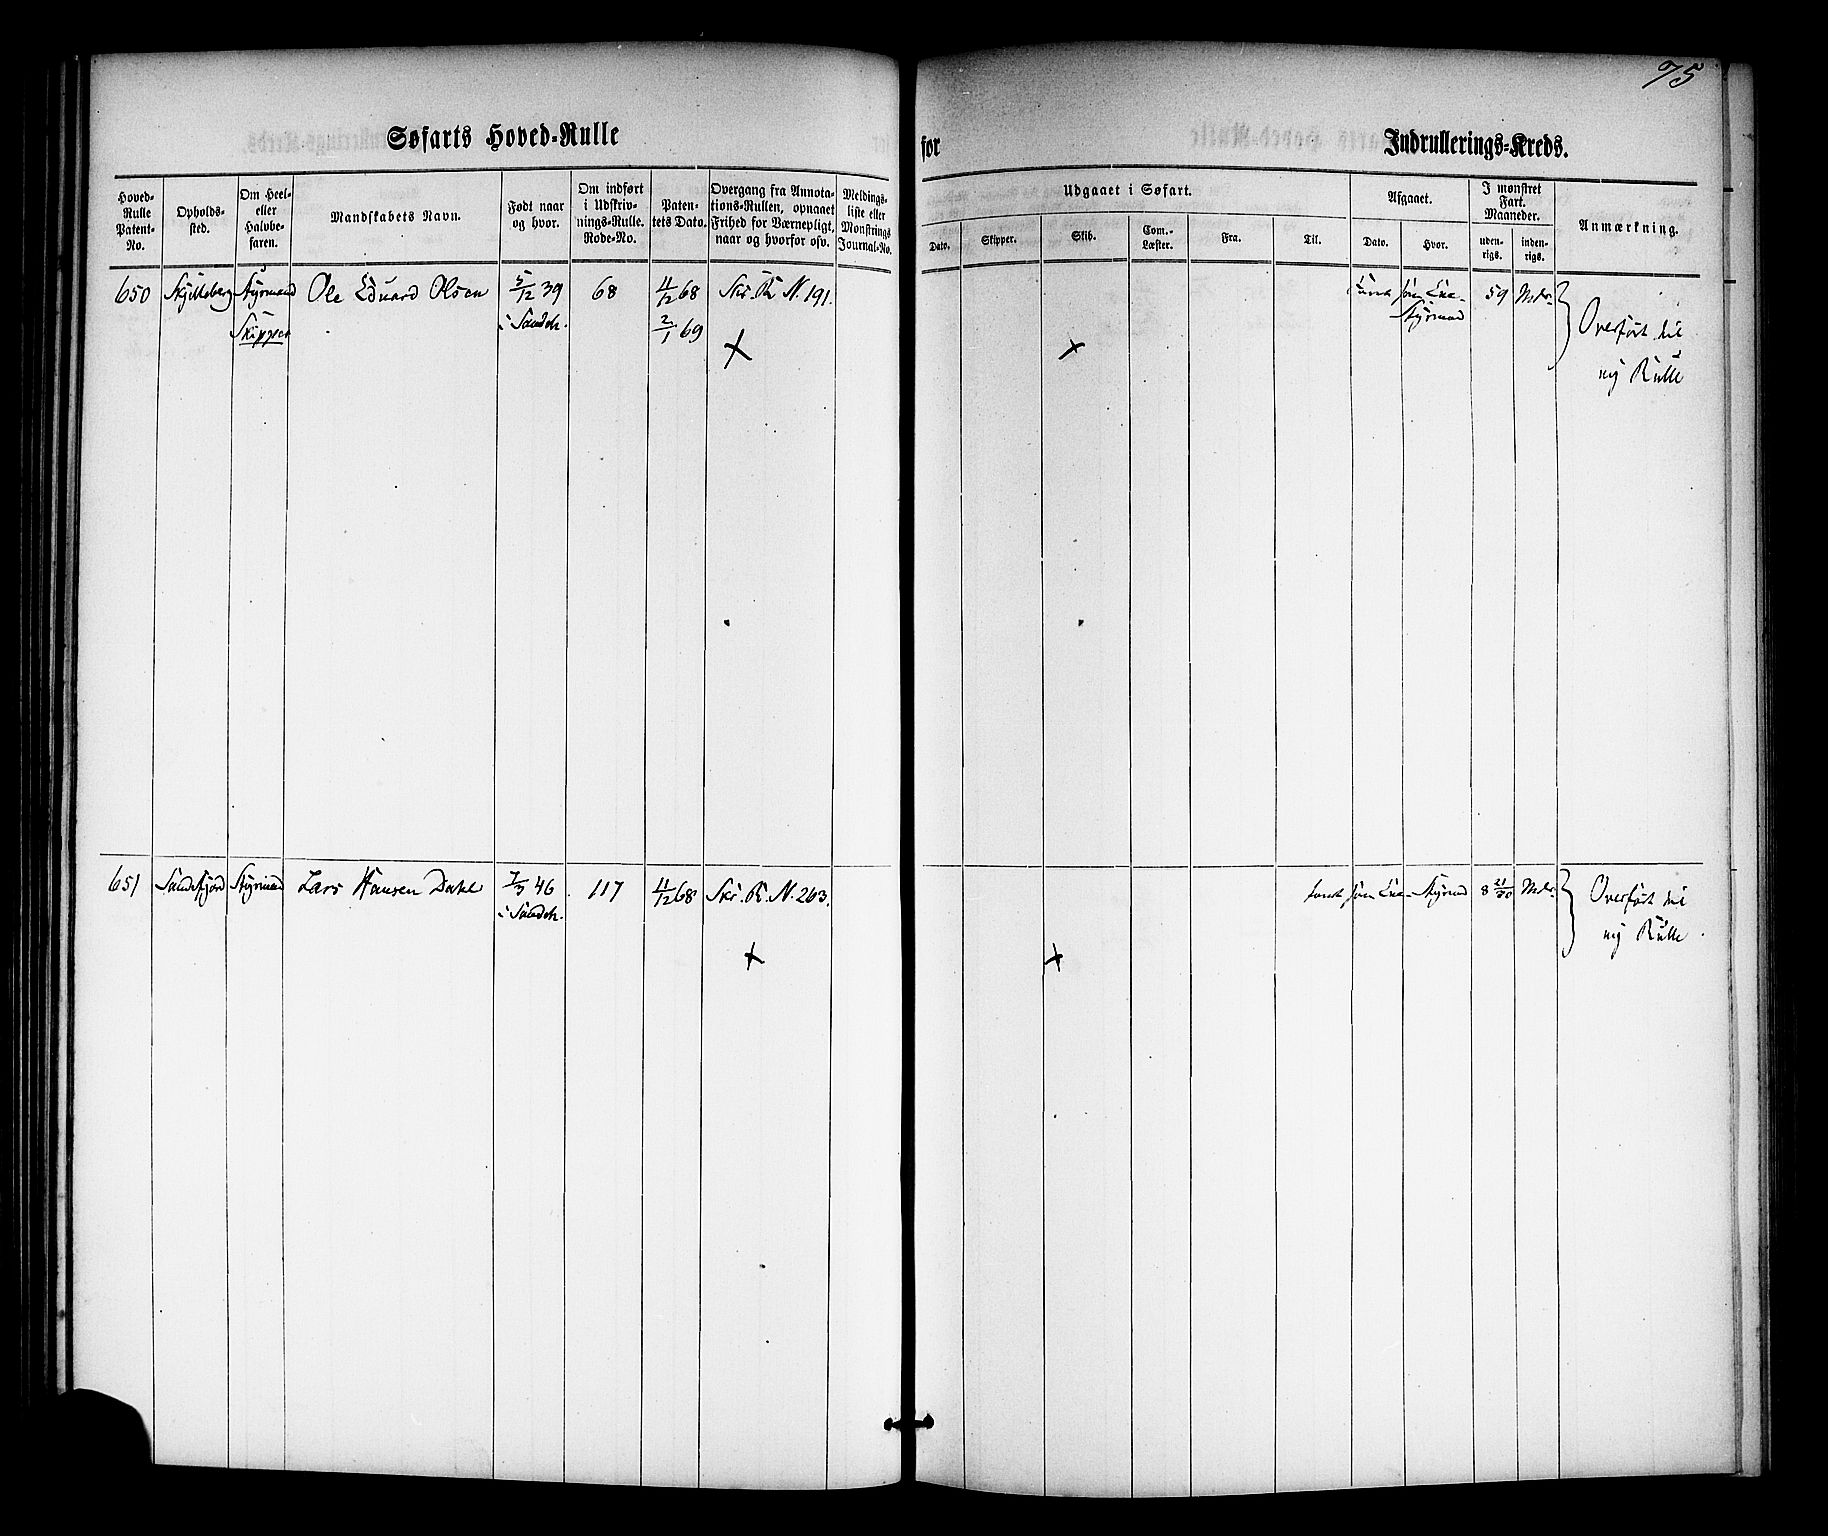 75
Søfarts Hoved-Rulle
for Indrullerings-Kreds.
Hoved-
Rulle
Patent-
No.
Opholds-
sted.
Om Heel-
eller
Halvbe-
faren.
Mandskabets Navn.
Født naar
og hvor.
Om indført
i Udskriv-
nings-Rulle.
Rode-No.
Paten-
tets Dato.
Overgang fra Annota-
tions-Rullen, opnaaet
Frihed for Værnepligt,
naar og hvorfor osv.
Meldings-
liste eller
Mønstrings
Journal-No.
Udgaaet i Søfart.
Dato.
Skipper.
Skib.
Com.-
Læster.
Fra.
Til.
Afgaaet.
Dato.
Hvor.
I mønstret
Fart.
Maaneder.
uden-
rigs.
inden-
rigs.
Anmærkning.
650 Skjelleberg Styrmand Ole Eduard Olsen 5/12 39 68 11/12 68 Skr. R. N. 191. 59 Mdr.
Skipper i Sandeh. 2/1 69 Styrmand
Overført til
ny Rulle
651 Sandefjord Styrmand Lars Hansen Dahl 7/3 46 117 11/12 68 Skr. R. N. 263. Styrmd 8 21/30 Mdr.
i Sandeh.
Overført til
ny Rulle